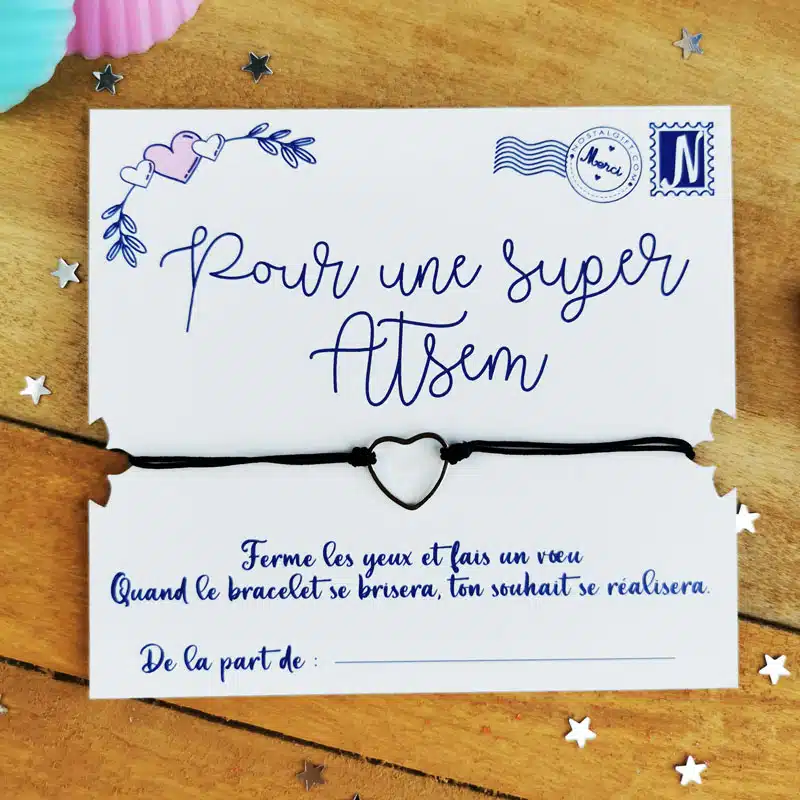 NOSTALGIFT.COM
Merci
N
Pour une super
Atsem
Ferme les yeux et fais un vœu
Quand le bracelet se brisera, ton souhait se réalisera.
De la part de :